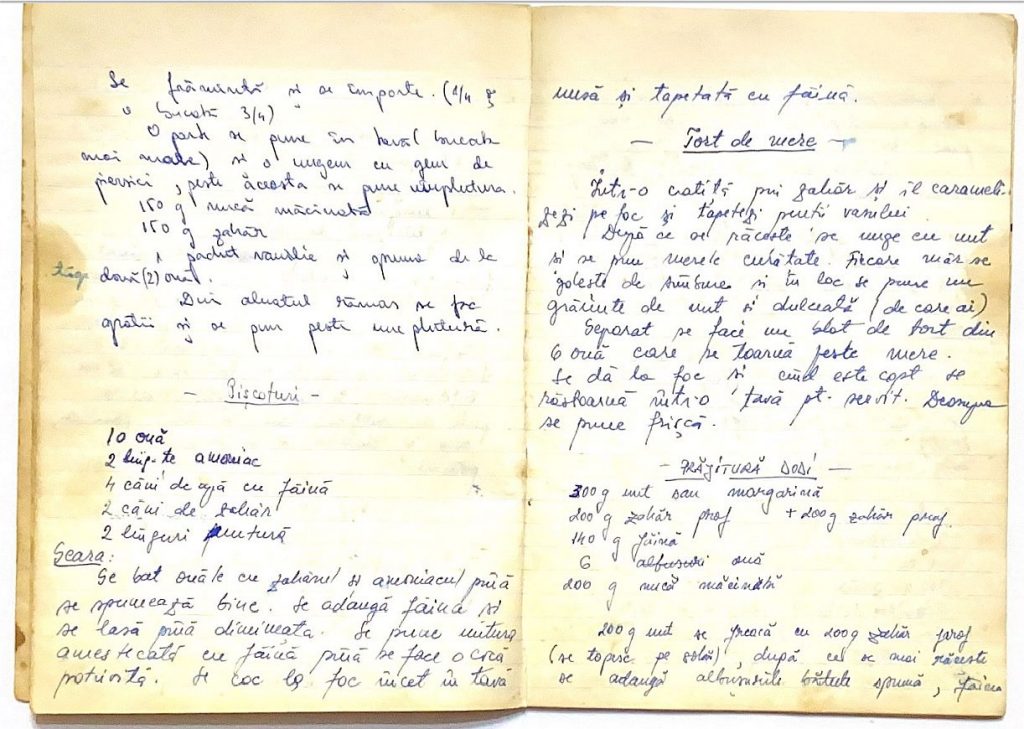 Se frămîntă si se împarte. (1/4 și
o bucată 3/4)
O parte se pune în tavă (bucata
mai mare) si o ungem cu gem de
piersici, peste aceasta se pune umplutura.
150 g nucă măcinată
150 g zahăr
1 pachet vanilie și spuma de la
două (2) ouă.
Din aluatul rămas se fac
gratii și se pun peste umplutură.
- Pișcoturi -
10 ouă
2 ling-te amoniac
4 căni de apă cu făină
2 căni de zahăr
2 linguri untură
Seara:
Se bat ouăle cu zahărul și amoniacul pînă
se spumează bine. Se adaugă făina si
se lasă pînă dimineata. Se pune untura
amestecată cu făină pînă se face o cocă
potrivită. Se coc la foc încet în tavă
unsă și tapetată cu făină.
- Tort de mere -
Într-o cratiță pui zahăr și îl carameli-
zezi pe foc și tapetezi pereții vasului.
După ce se răcește se unge cu unt
si se pun merele curătate. Fiecare măr se
golește de sîmbure si în loc se pune un
grăunte de unt si dulceată (de care ai)
Separat se face un blat de tort din
6 ouă care se toarnă peste mere.
Se dă la foc si cînd este copt se
răstoarnă într-o tavă pt. servit. Deasupra
se pune frișcă.
- PRĂJITURĂ DODI -
300 g unt sau margarină
200 g zahăr praf + 200 g zahăr praf.
140 g făină
6 albusuri ouă
200 g nucă măcinată
200 g unt se freacă cu 200 g zahăr praf
(se topesc pe sobă), după ce se mai răcesti
se adaugă albusurile bătute spumă, făina